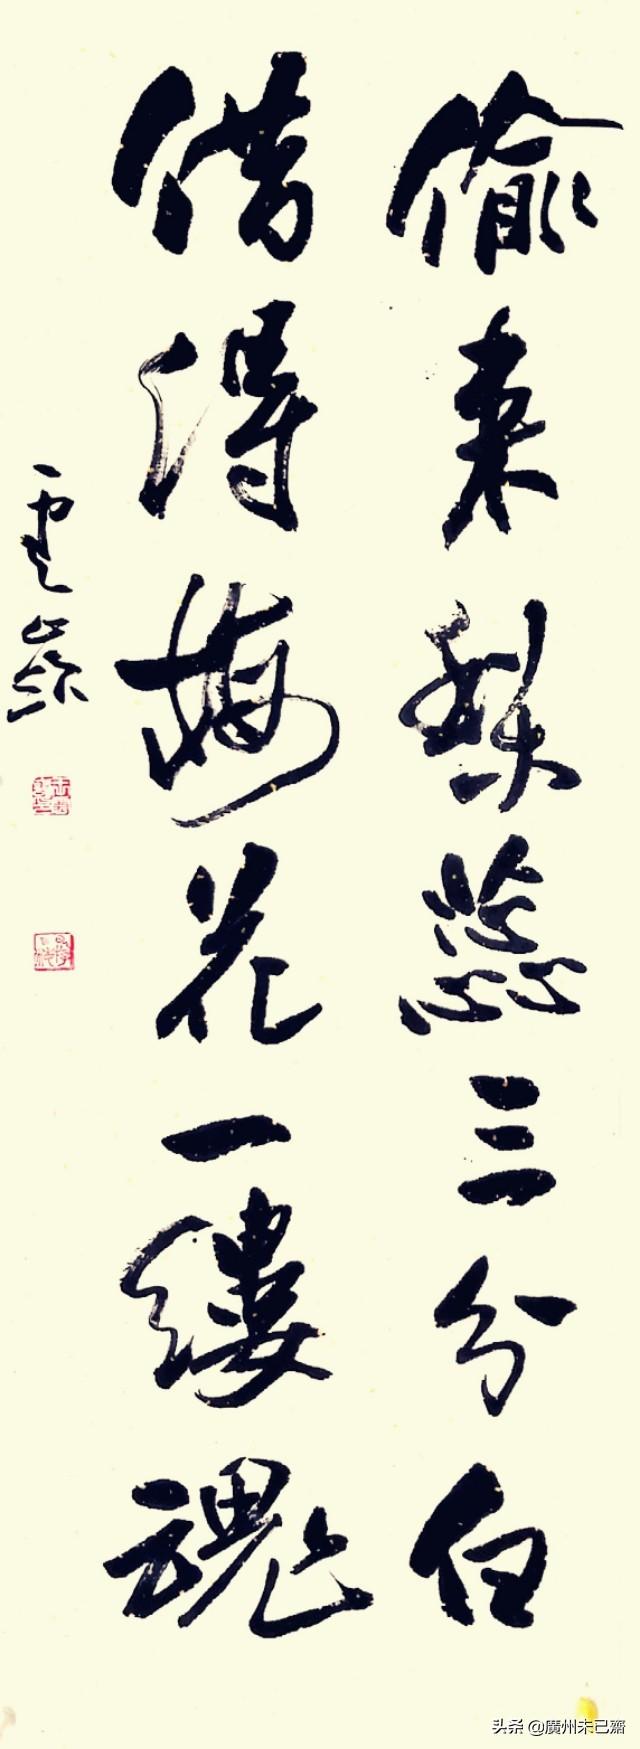 偷来梨蕊三分白
借得梅花一缕魂
头条 @廣州未已齋